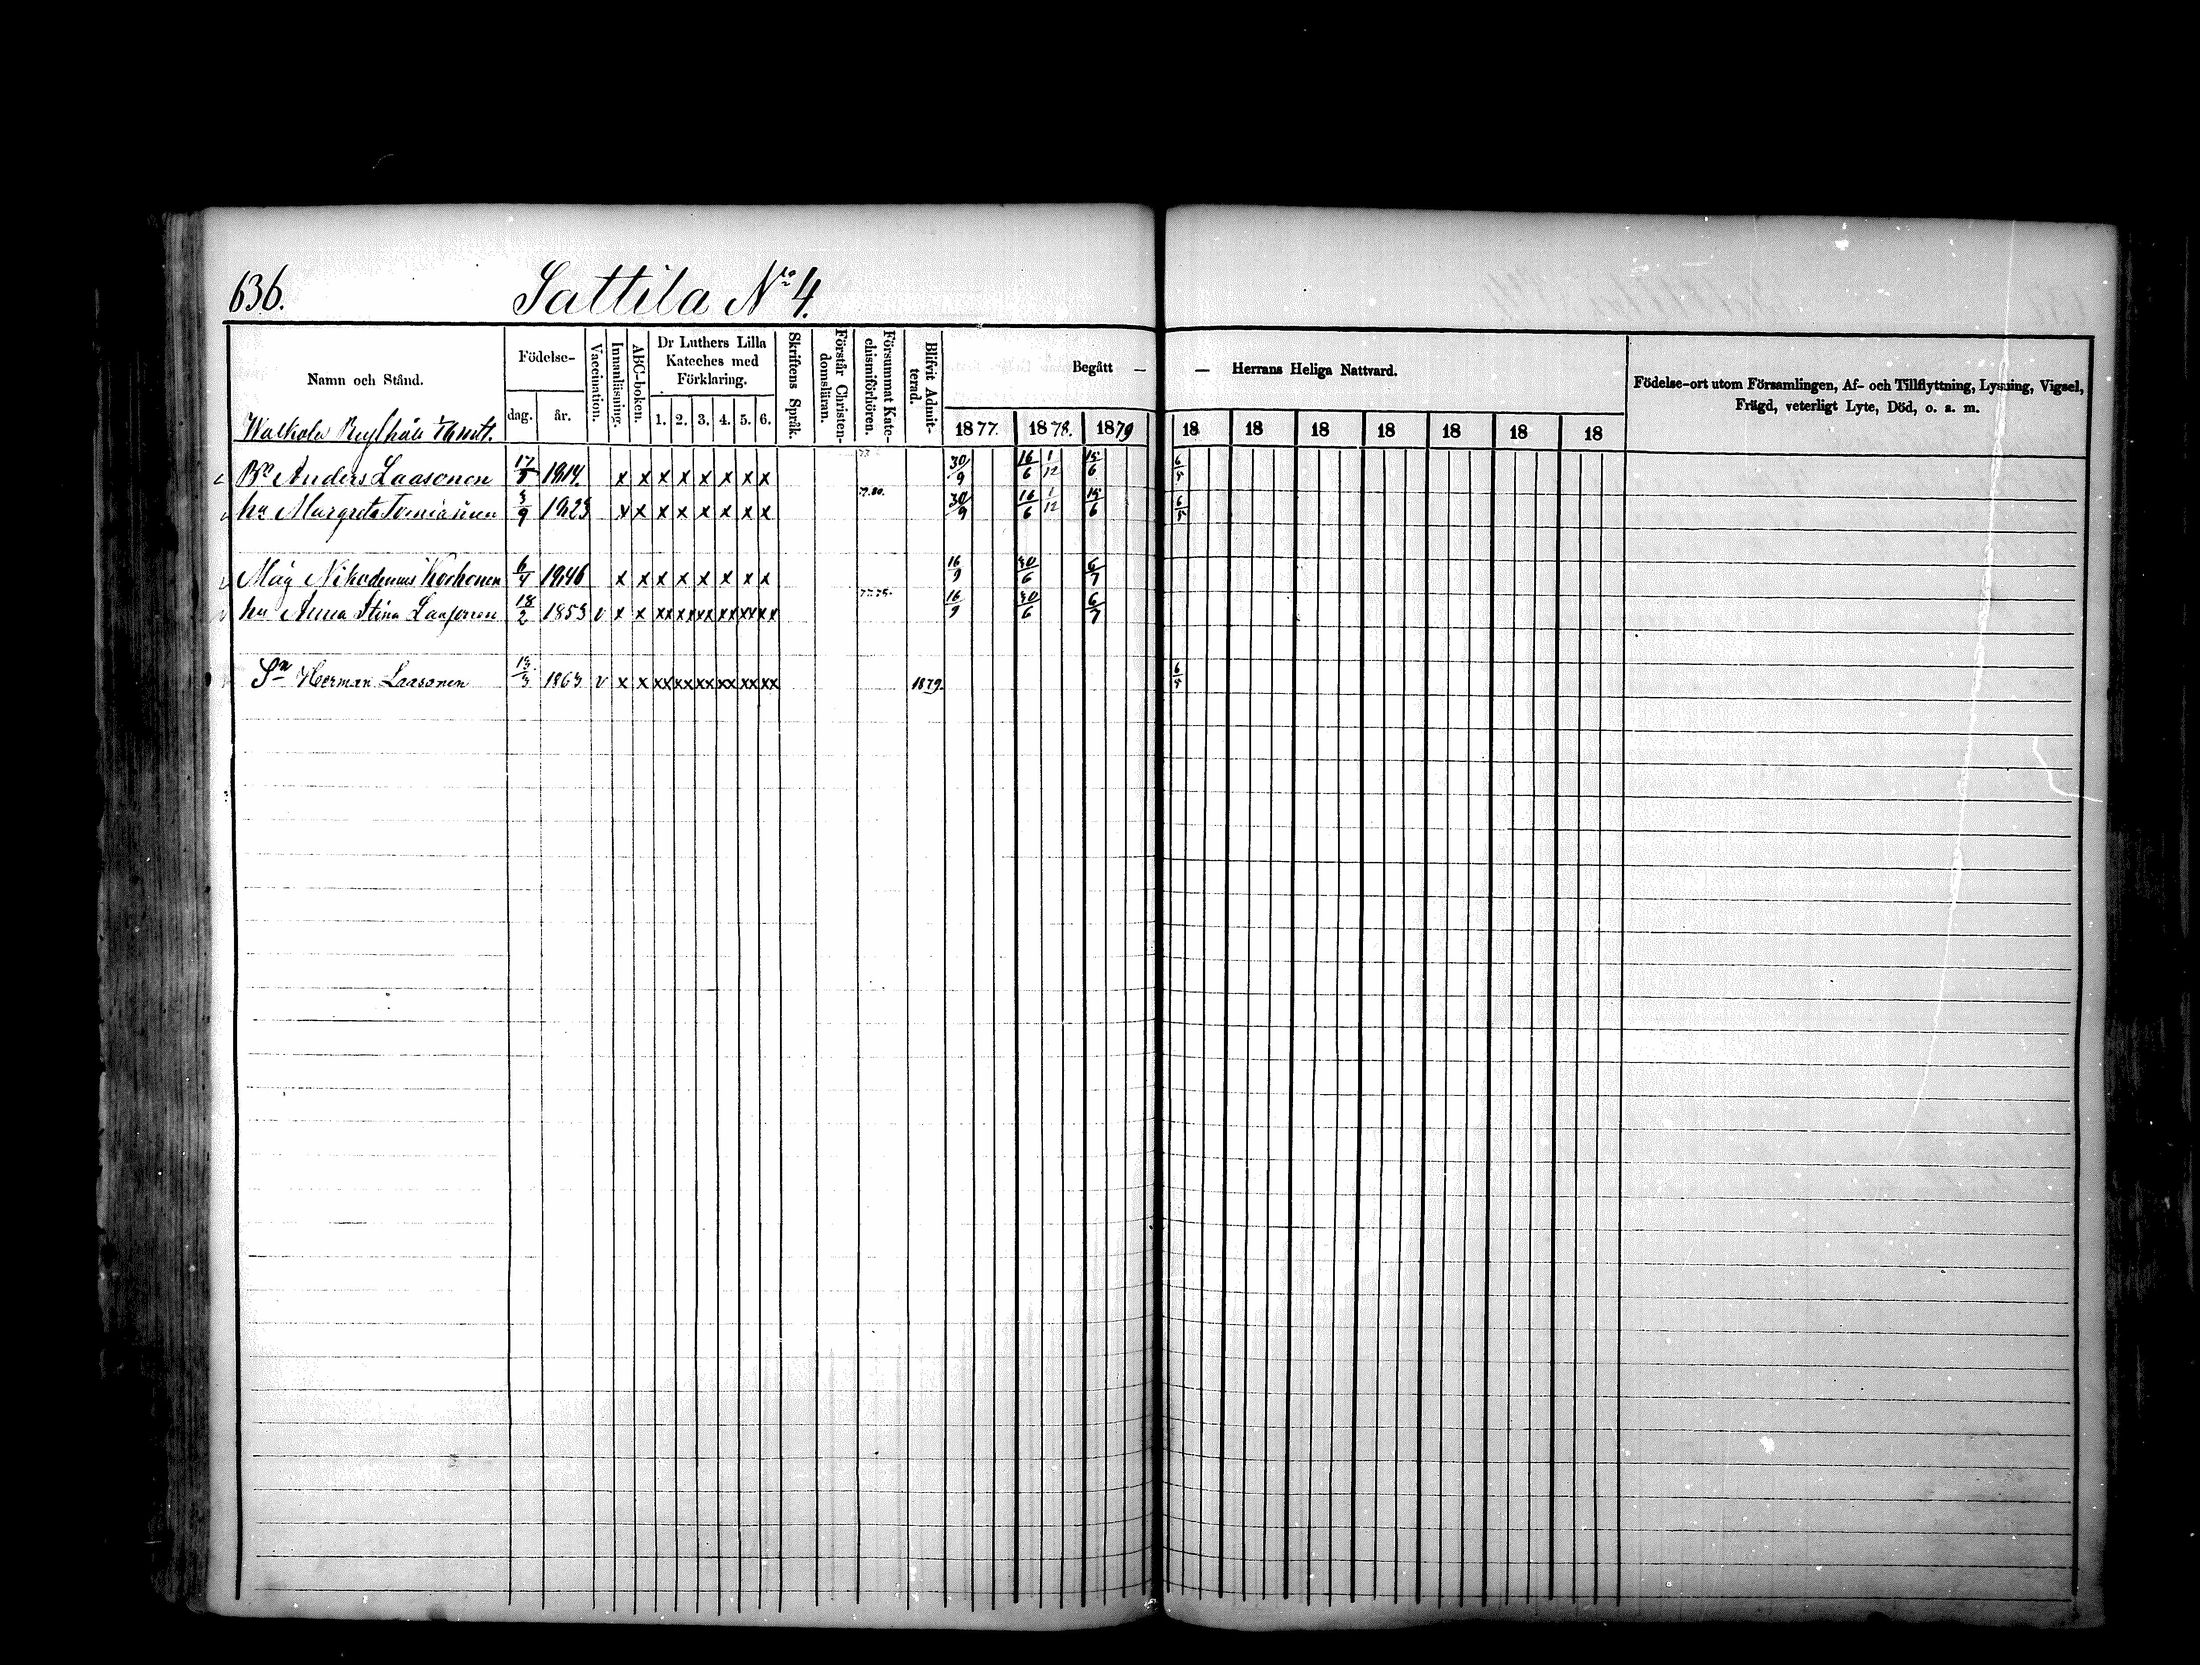 636. Sattila No 4.
Namn och Stånd. Födelse- dag. år. Vaccination. Innanläsning. ABC-boken. Dr Luthers Lilla Kateches med Förklaring. 1. 2. 3. 4. 5. 6. Skriftens Språk. Förstår Christen-domsläran. Försummat Kate-chismiförhören. Blifvit Admit-terad. Begått — — Herrans Heliga Nattvard. Födelse-ort utom Församlingen, Af- och Tillflyttning, Lysning, Vigsel, Frägd, veterligt Lyte, Död, o. s. m.
1877. 1878. 1879 18 18 18 18 18 18 18
Anders Laasonen 17/5 1814. x x x x x x x x 30/9 16/6 1/12 15/6 6/5
hu Margreta 3/9 1823 x x x x x x x x 79.80. 30/9 16/6 1/12 15/6 6/5
Måg Nikodemus Korhonen 6/4 1846 x x x x x x x x 16/9 30/6 6/7
hu Anna Stina Laasonen 18/2 1853 v x x xx xx xx xx xx xx 16/9 30/6 6/7
Sn Herman Laasonen 13/3 1863 v x x xx xx xx xx xx xx 1879. 6/5